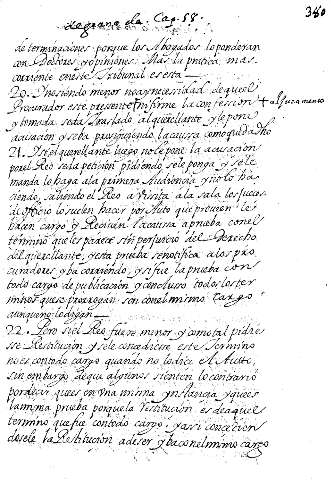 de grana da. Cap. 58.
380
determinaciones porque los Abogados lo ponderan
con Doctores y opiniones. Mas la practica mas
corriente en este Tribunal es esta
20. No siendo menor no ay necesidad de que el
Procurador este presente ni firme la confession + al juramento
y tomada se da traslado al querellante y le pone
acusacion y se ba prosiguiendo la causa como queda dho
21. Y si el querellante luego no le pone la acusacion
por el Reo se da peticion pidiendo se le ponga y se le
manda lo haga a la primera Audiencia y no lo ha
ciendo, saliendo el Reo a visita a la sala los Jueces
de oficio lo suelen hacer por Auto que proveen le
hacen cargo y Reciuen la causa a prueba con el
termino que les parece sin perjuicio del derecho
del querellante, y esta prueba se notifica a los pro
curadores y ba corriendo, y si fue la prueba con
todo cargo de publicacion y conclusion todos los ter
minos que se prorrogan son con el mismo cargo
aunque no lo digan
22. Pero si el Reo fuere menor y como tal pidies
se Restitucion y se le concediese este termino
no es con todo cargo quando no lo dice el Auto,
sin embargo de que algunos sienten lo contrario
por decir que es en una misma ynstancia y que es
la misma prueba porque la Restitucion es de aquel
termino que fue con todo cargo, y assi concedien
dosele la Restitucion a de ser y ba con el mismo cargo